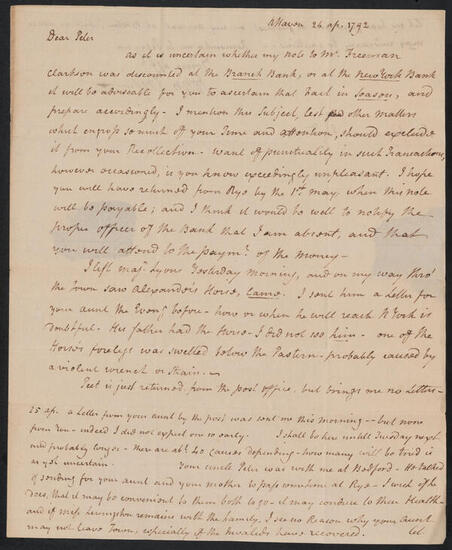 Albany 24 ap. 1792
Dear Peter
as it is uncertain whether my note to Mr. Freeman
Clarkson was discounted at the Branch Bank, or at the New York Bank
it will be adviseable for you to ascertain that Fact in Season, and
prepare accordingly- I mention this Subject, lest other matters
which engross so much of your Time and attention, should exclude
it from your Recollection- want of punctuality in such Transactions,
however occasioned, is you know exceedingly unpleasant. I hope
you will have returned from Rye by the 1st. may, when this note
will be payable; and I think it would be well to notify the
proper officer of the Bank that I am absent, and that
you will attend to the paymt. of the money-
I left majr Lyons Yesterday morning, and on my way thro'
the Town saw Alexander's Horse, Lame. I sent him a Letter for
your aunt the Eveng. before- how or when he will reach N York is
doubtful. His father had the Horse- I did not see him- one of the
Horse's forelegs was swelled below the Pastern- probably caused by
a violent wrench or strain.-
Peet is just returned from the post office, but brings me no Letters-
25 ap. a Letter from your aunt by the post was sent me this morning- but none
from You- indeed I did not expect one so early. I shall be here untill Tuesday next
and probably longer- Here are abt. 40 causes depending- how many will be tried is
as yet uncertain. Your uncle Peter was with me at Bedford- He talked
of sending for your aunt and your mother to pass sometime at Rye- I wish if he
does, that it may be convenient to them both to go- it may conduce to their Health-
and if miss Livingston remains with the family, I see no Reason why your aunt
may not leave Town, especially if the Invalids have recovered.